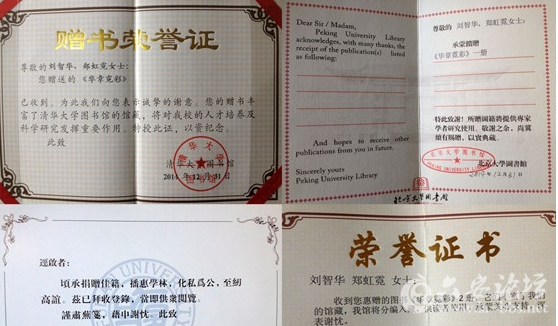 赠书荣誉证
尊敬的刘智华，郑虹霓女士：
您赠送的《华章霓彩》
已收到。为此我们向您表示诚挚的谢意。您的赠书丰
富了清华大学图书馆的馆藏，将对我校的人才培养及
科学研究发挥重要作用。特授此证，以资纪念。
此致
清华大学图书馆
2014年12月31日
Dear Sir / Madam,
Peking University Library
acknowledges, with many thanks, the
receipt of the publication(s) listed
as following:
And hopes to receive other
publications from you in future.
Sincerely yours
Peking University Library
尊敬的 刘智华，郑虹霓女士：
承蒙餽贈
《华章霓彩》一册
特此致謝！所贈圖籍將提供專家
學者研究使用。敬謝之余，尚冀
續有賜贈，以實典藏。
北京大學圖書館
2014年12月31日
北京大学图书馆
逕啟者：
頃承捐贈佳籍，播惠學林，化私爲公，至紉
高誼。茲已拜收登錄，當即供衆閱覽。
謹肅蕪箋，藉申謝忱。此致
荣誉证书
刘智华 郑虹霓 女士：
收到您惠赠的图书《华章霓彩》2册
我们
的馆藏，我馆将分编入
深表谢忱。